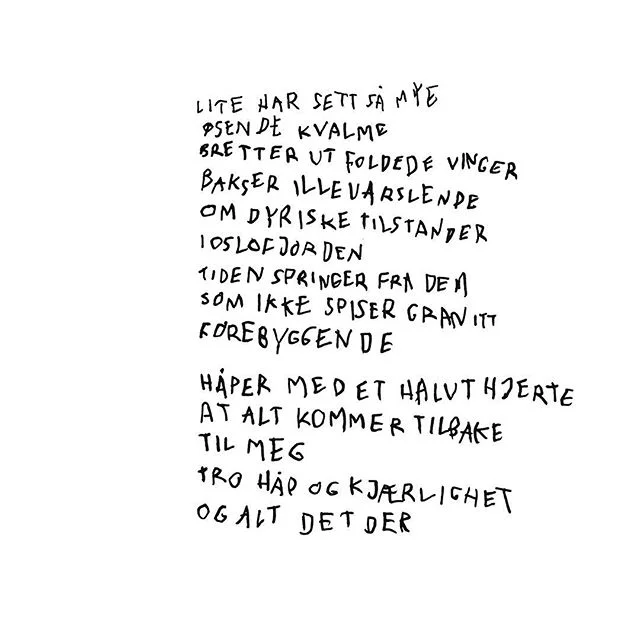 LITE HAR SETT SÅ MYE
ØSENDE KVALME
BRETTER UT FOLDEDE VINGER
BAKSER ILLEVARSLENDE
OM DYRISKE TILSTANDER
I OSLOFJORDEN
TIDEN SPRINGER FRA DEM
SOM IKKE SPISER GRANITT
FOREBYGGENDE
HÅPER MED ET HALVT HJERTE
AT ALT KOMMER TILBAKE
TIL MEG
TRO HÅP OG KJÆRLIGHET
OG ALT DET DER